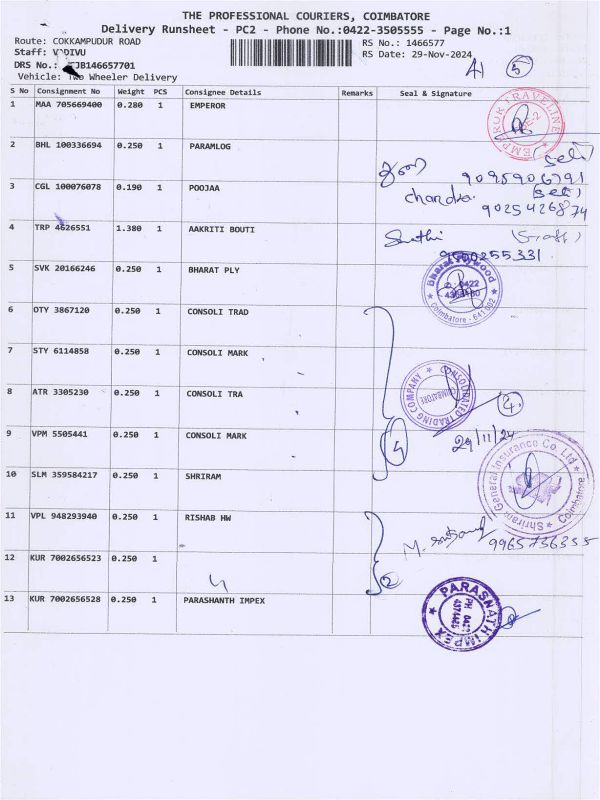 THE PROFESSIONAL COURIERS, COIMBATORE
Delivery Runsheet - PC2 - Phone No.:0422-3505555 - Page No.:1
Route: COKKAMPUDUR ROAD
RS No.: 1466577
Staff: VADIVU
RS Date: 29-Nov-2024
DRS No.: JB146657701
A1 5
Vehicle: Two Wheeler Delivery
S No Consignment No Weight PCS Consignee Details Remarks Seal & Signature
1 MAA 705669400 0.280 1 EMPEROR
2 BHL 100336694 0.250 1 PARAMLOG
(Self)
9095906791
3 CGL 100076078 0.190 1 POOJAA
chandra (Self)
9025426874
4 TRP 4626551 1.380 1 AAKRITI BOUTI
(Staff)
255331
5 SVK 20166246 0.250 1 BHARAT PLY
Bharat Plywood
0422
Coimbatore - 641 002
6 DTY 3867120 0.250 1 CONSOLI TRAD
7 STY 6114858 0.250 1 CONSOLI MARK
8 ATR 3305230 0.250 1 CONSOLI TRA
CONSOLIDATED TRADING COMPANY
COIMBATORE
4
9 VPM 5505441 0.250 1 CONSOLI MARK
29/11/24
10 SLM 359584217 0.250 1 SHRIRAM
Shriram General Insurance Co. Ltd
Coimbatore
11 VPL 948293940 0.250 1 RISHAB HW
9965736355
12 KUR 7002656523 0.250 1
2
13 KUR 7002656528 0.250 1 PARASHANTH IMPEX
PARASNATH IMPEX
PH 0422
4374445